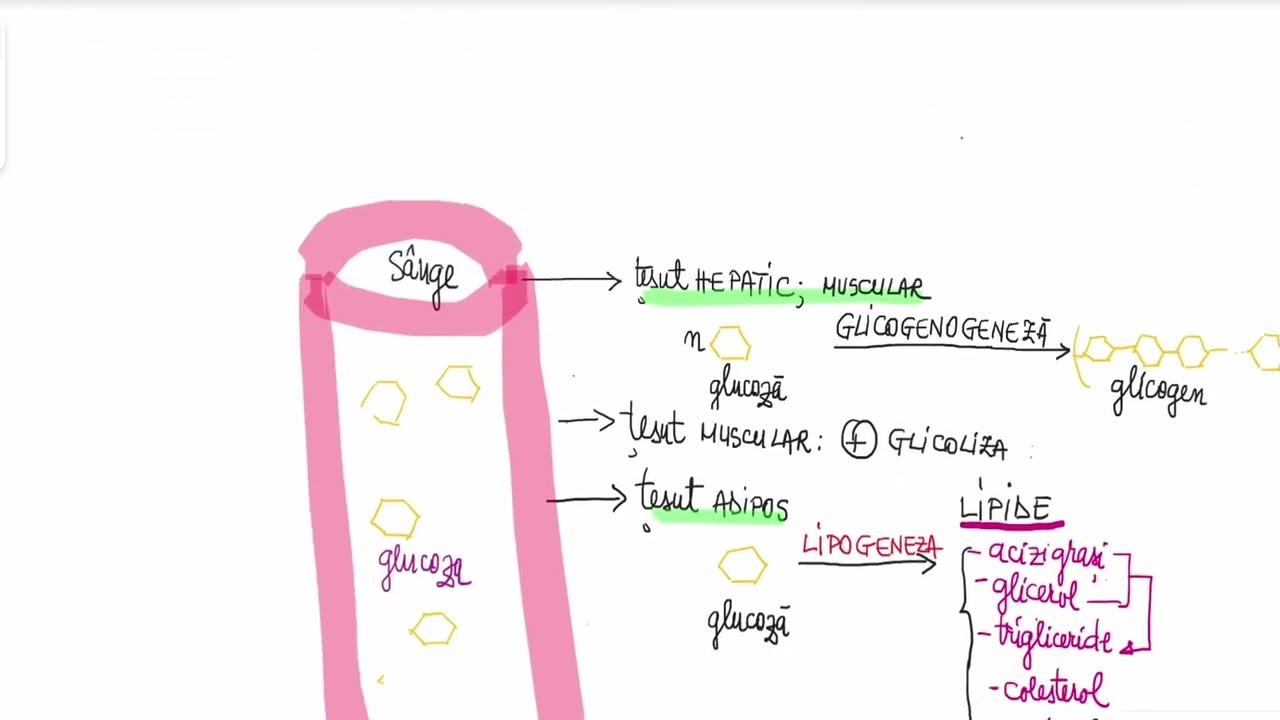 Sânge
țesut HEPATIC; MUSCULAR
n
glucoză
GLICOGENOGENEZĂ
glicogen
țesut MUSCULAR: + GLICOLIZA
țesut ADIPOS
glucoză
LIPOGENEZA
glucoza
LIPIDE
- acizi grași
- glicerol
- trigliceride
- colesterol